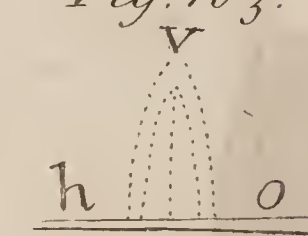 Fig. 103.
V
h o